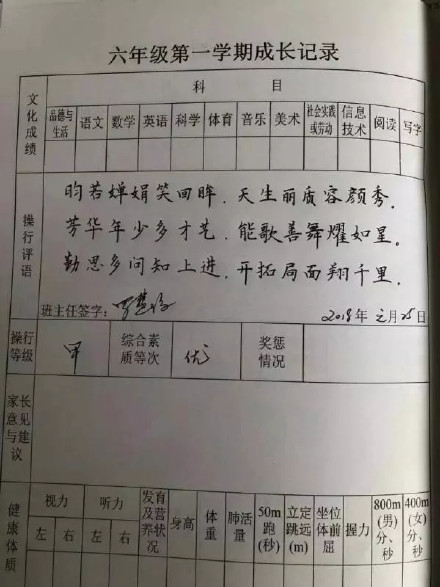 六年级第一学期成长记录
文化成绩
科 目
品德与生活 语文 数学 英语 科学 体育 音乐 美术 社会实践或劳动 信息技术 阅读 写字
操行评语
昀若婵娟笑回眸，天生丽质容颜秀。
芳华年少多才艺，能歌善舞耀如星。
勤思多问知上进，开拓局面翔千里。
班主任签字：
2018年 月25日
操行等级 甲 综合素质等次 优 奖惩情况
家长意见与建议
健康体质
视力 听力 发育及营养状况 身高 体重 肺活量 50m跑(秒) 立定跳远(m) 坐位体前屈 握力 800m(男)分、秒 400m(女)分、秒
左 右 左 右